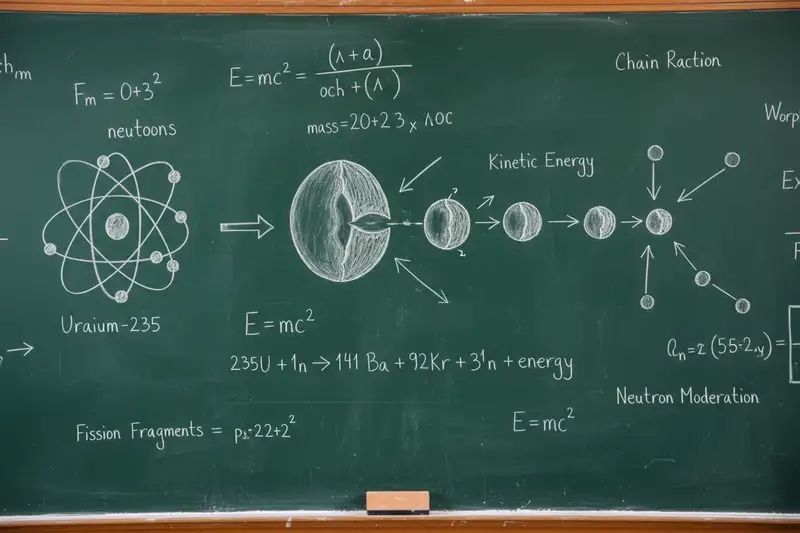 Fₘ = 0+3²
neutoons
E=mc² = (Λ+a) / och + (Λ)
mass=20+23 x ΛOC
Chain Raction
Kinetic Energy
Uraium-235
E=mc²
235U + 1n → 141 Ba + 92Kr + 3¹n + energy
Neutron Moderation
Fission Fragments =
E=mc²